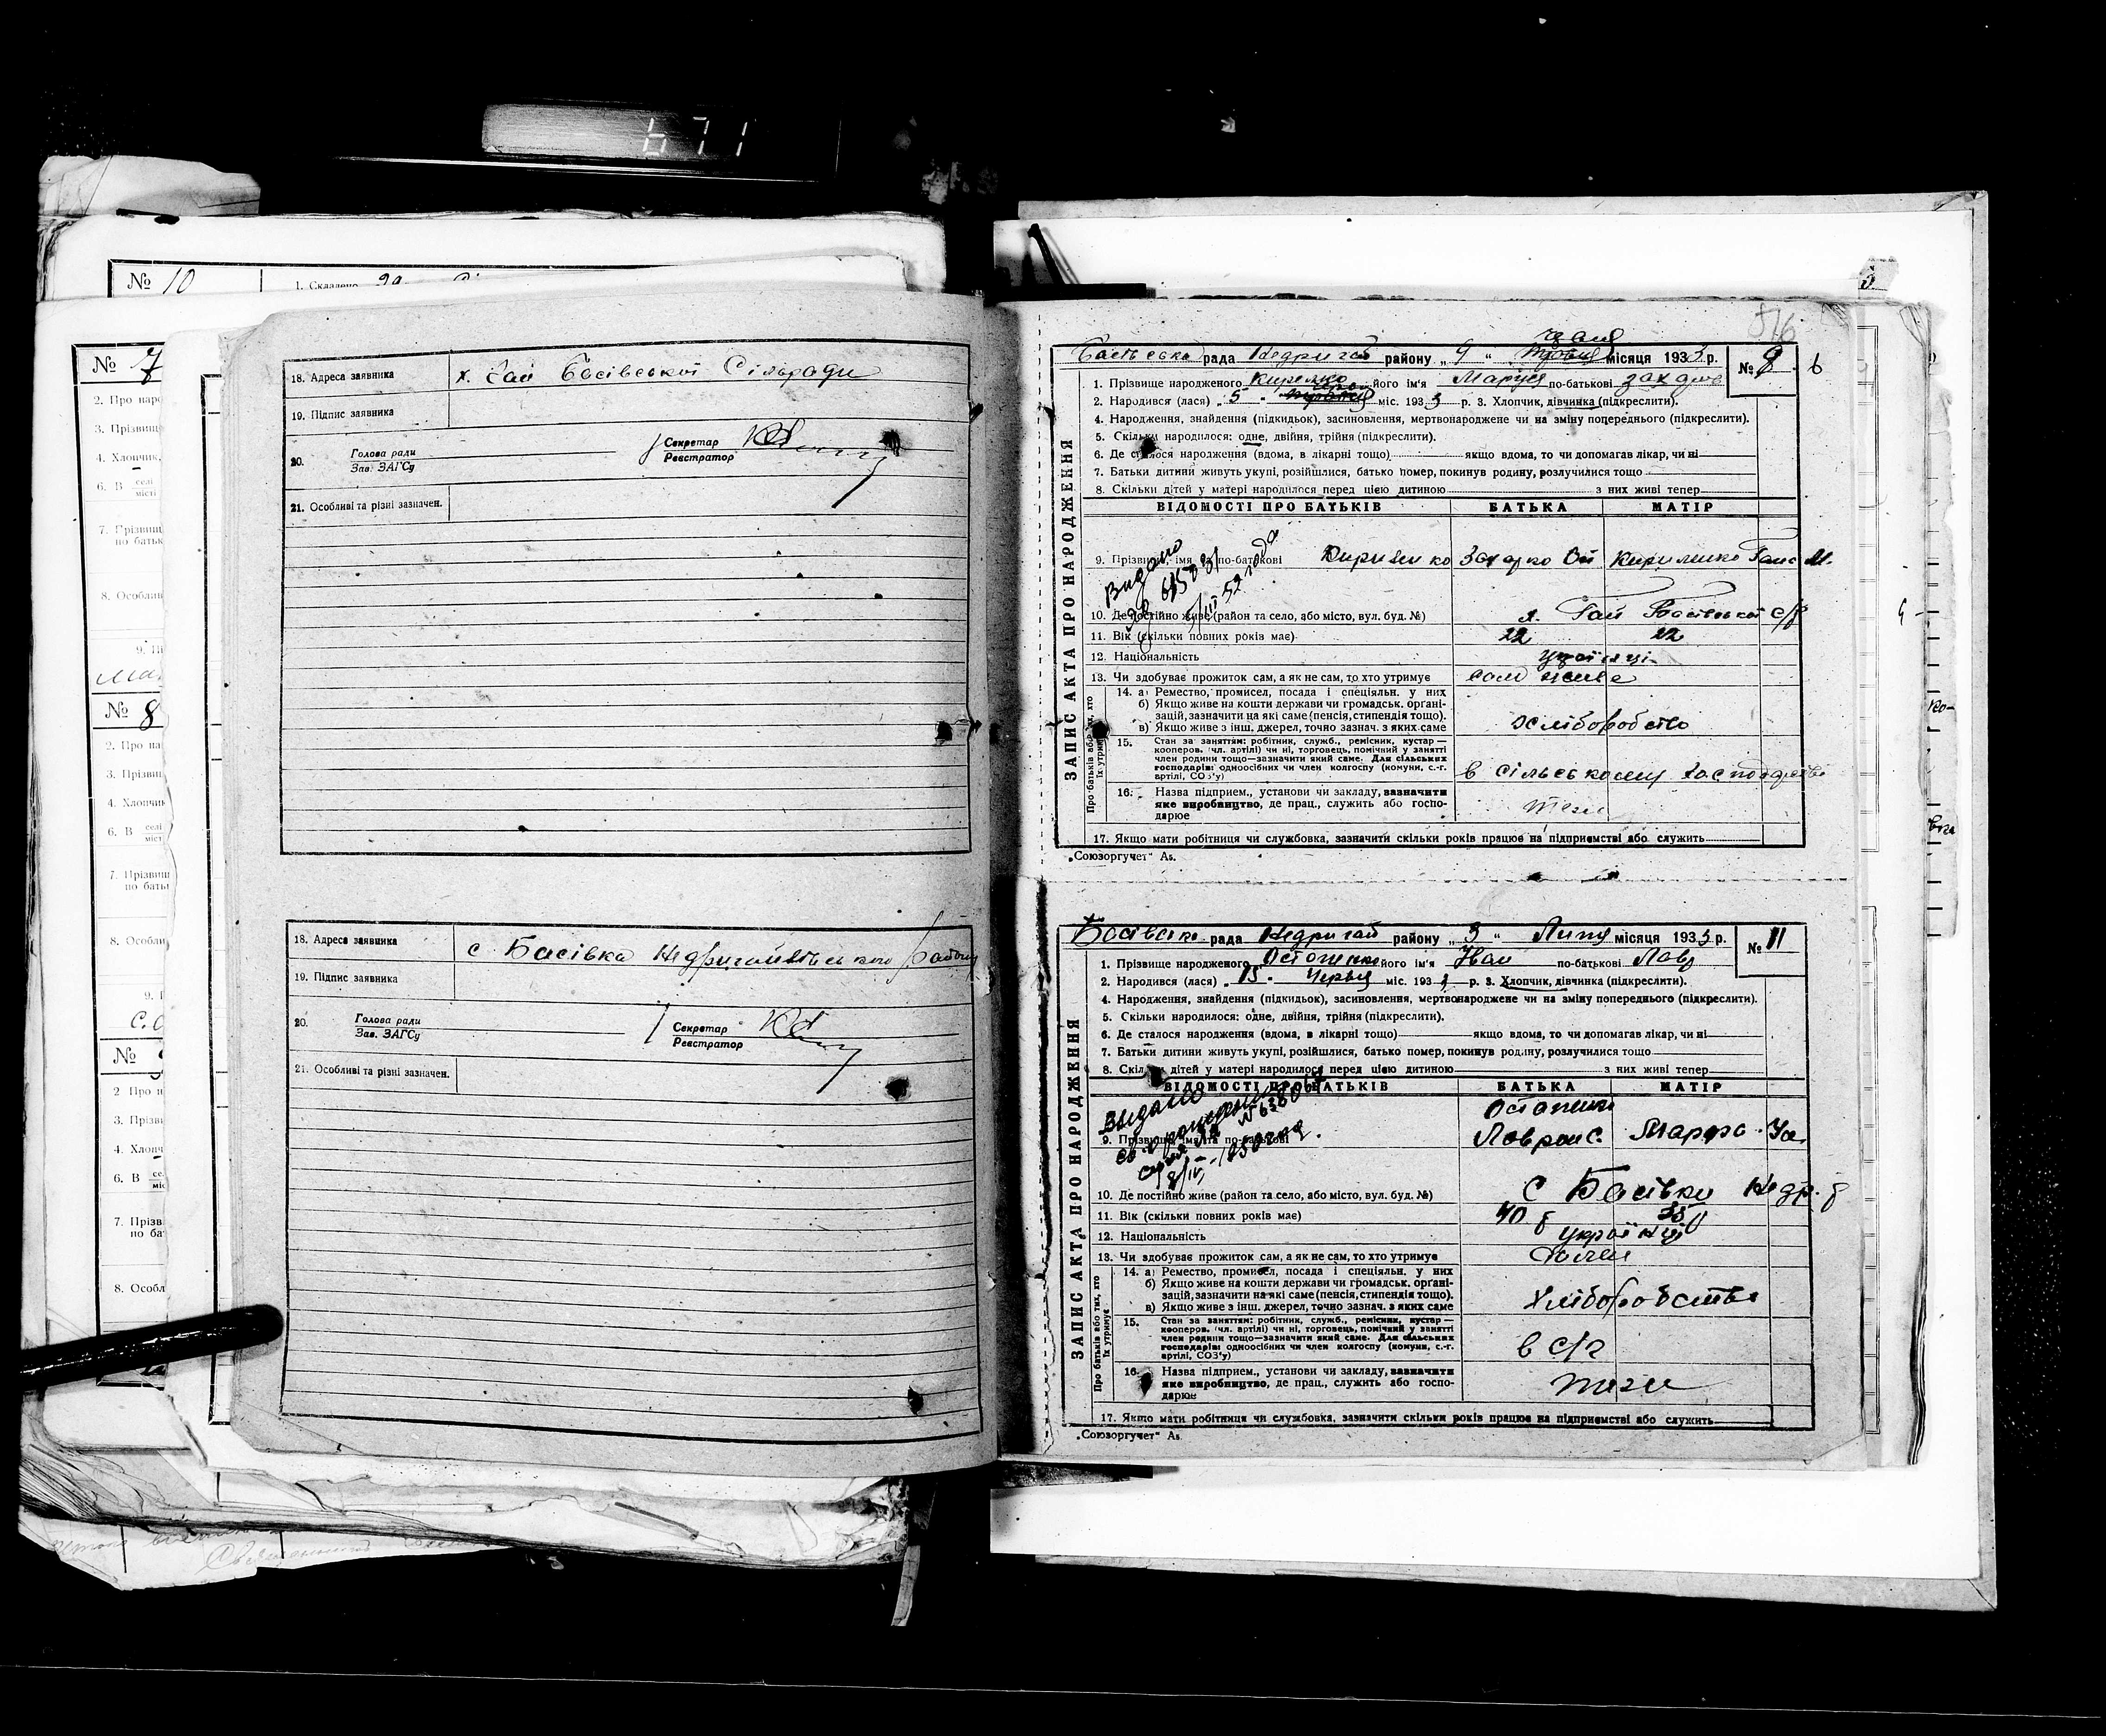 671
№ 10
1. Складено
№ 7
2. Про наро
3. Прізвищ
4. Хлопчик,
6. В селі
місті
7. Прізвищ
по батьк
8. Особлив
№ 8
2. Про на
3. Прізвищ
4. Хлопчик
6. В селі
міст
7. Прізвищ
по батьк
8. Особли
№
2 Про н
3. Прізв
4. Хлопч
6. В
7. Прізв
по ба
8. Особл
18. Адреса заявника х. Гай Басівської Сільради
19. Підпис заявника
20. Голова ради
Зав. ЗАГСу
Секретар
Реєстратор
21. Особливі та різні зазначен.
18. Адреса заявника с Басівка Недригайлівського району
19. Підпис заявника
20. Голова ради
Зав. ЗАГСу
Секретар
Реєстратор
21. Особливі та різні зазначен.
516
ЗАПИС АКТА ПРО НАРОДЖЕННЯ
Басівська рада Недригай району „ 9 “ місяця 1933 р.
№ 9
1. Прізвище народженого його ім'я Маруся по-батькові
2. Народився (лася) „ 5 “ міс. 1933 р. 3. Хлопчик, дівчинка (підкреслити).
4. Народження, знайдення (підкидьок), засиновлення, мертвонароджене чи на зміну попереднього (підкреслити).
5. Скільки народилося: одне, двійня, трійня (підкреслити).
6. Де сталося народження (вдома, в лікарні тощо) якщо вдома, то чи допомагав лікар, чи ні
7. Батьки дитини живуть укупі, розійшлися, батько помер, покинув родину, розлучилися тощо
8. Скільки дітей у матері народилося перед цією дитиною з них живі тепер
ВІДОМОСТІ ПРО БАТЬКІВ БАТЬКА МАТІР
Видано
52 года
9. Прізвище, імя та по-батькові Кириленко Захарко Кириленко М.
10. Де постійно живе (район та село, або місто, вул. буд. №) х. Гай Басівської с/р
11. Вік (скільки повних років має) 22 22
12. Національність українці
13. Чи здобуває прожиток сам, а як не сам, то хто утримує сам живе
Про батьків або тих, хто їх утримує
14. а) Ремество, промисел, посада і спеціяльн. у них
б) Якщо живе на кошти держави чи громадськ. органі-
зацій, зазначити на які саме (пенсія, стипендія тощо).
в) Якщо живе з інш. джерел, точно зазнач. з яких саме
хліборобство
15. Стан за заняттям: робітник, служб., ремісник, кустар —
кооперов. (чл. артілі) чи ні, торговець, помічний у занятті
член родини тощо—зазначити який саме. Для сільських
господарів: одноосібних чи член колгоспу (комуни, с.-г.
артілі, СОЗ'у)
в сільському господарстві
16. Назва підприєм., установи чи закладу, вазначити
яке виробництво, де прац., служить або госпо-
дарює
теж
17. Якщо мати робітниця чи службовка, зазначити скільки років працює на підприємстві або служить
„Союзоргучет“ Аз.
ЗАПИС АКТА ПРО НАРОДЖЕННЯ
Басівська рада Недригай району „ 3 “ Липня місяця 1933 р.
№ 11
1. Прізвище народженого Остапенко його ім'я Іван по-батькові Лавр
2. Народився (лася) „ 15 “ Червня міс. 193 р. 3. Хлопчик, дівчинка (підкреслити).
4. Народження, знайдення (підкидьок), засиновлення, мертвонароджене чи на зміну попереднього (підкреслити).
5. Скільки народилося: одне, двійня, трійня (підкреслити).
6. Де сталося народження (вдома, в лікарні тощо) якщо вдома, то чи допомагав лікар, чи ні
7. Батьки дитини живуть укупі, розійшлися, батько помер, покинув родину, розлучилися тощо
8. Скільки дітей у матері народилося перед цією дитиною з них живі тепер
ВІДОМОСТІ ПРО БАТЬКІВ БАТЬКА МАТІР
Видано
Остапенко
9. Прізвище, імя та по-батькові Лаврон С. Марфа
10. Де постійно живе (район та село, або місто, вул. буд. №) с Басівка Недр. р
11. Вік (скільки повних років має) 40 р 35
12. Національність українці
13. Чи здобуває прожиток сам, а як не сам, то хто утримує
Про батьків або тих, хто їх утримує
14. а) Ремество, промисел, посада і спеціяльн. у них
б) Якщо живе на кошти держави чи громадськ. органі-
зацій, зазначити на які саме (пенсія, стипендія тощо).
в) Якщо живе з інш. джерел, точно зазнач. з яких саме
Хліборобство
15. Стан за заняттям: робітник, служб., ремісник, кустар —
кооперов. (чл. артілі) чи ні, торговець, помічний у занятті
член родини тощо—зазначити який саме. Для сільських
господарів: одноосібних чи член колгоспу (комуни, с.-г.
артілі, СОЗ'у)
в с/г
16. Назва підприєм., установи чи закладу, вазначити
яке виробництво, де прац., служить або госпо-
дарює
теж
17. Якщо мати робітниця чи службовка, зазначити скільки років працює на підприємстві або служить
„Союзоргучет“ Аз.